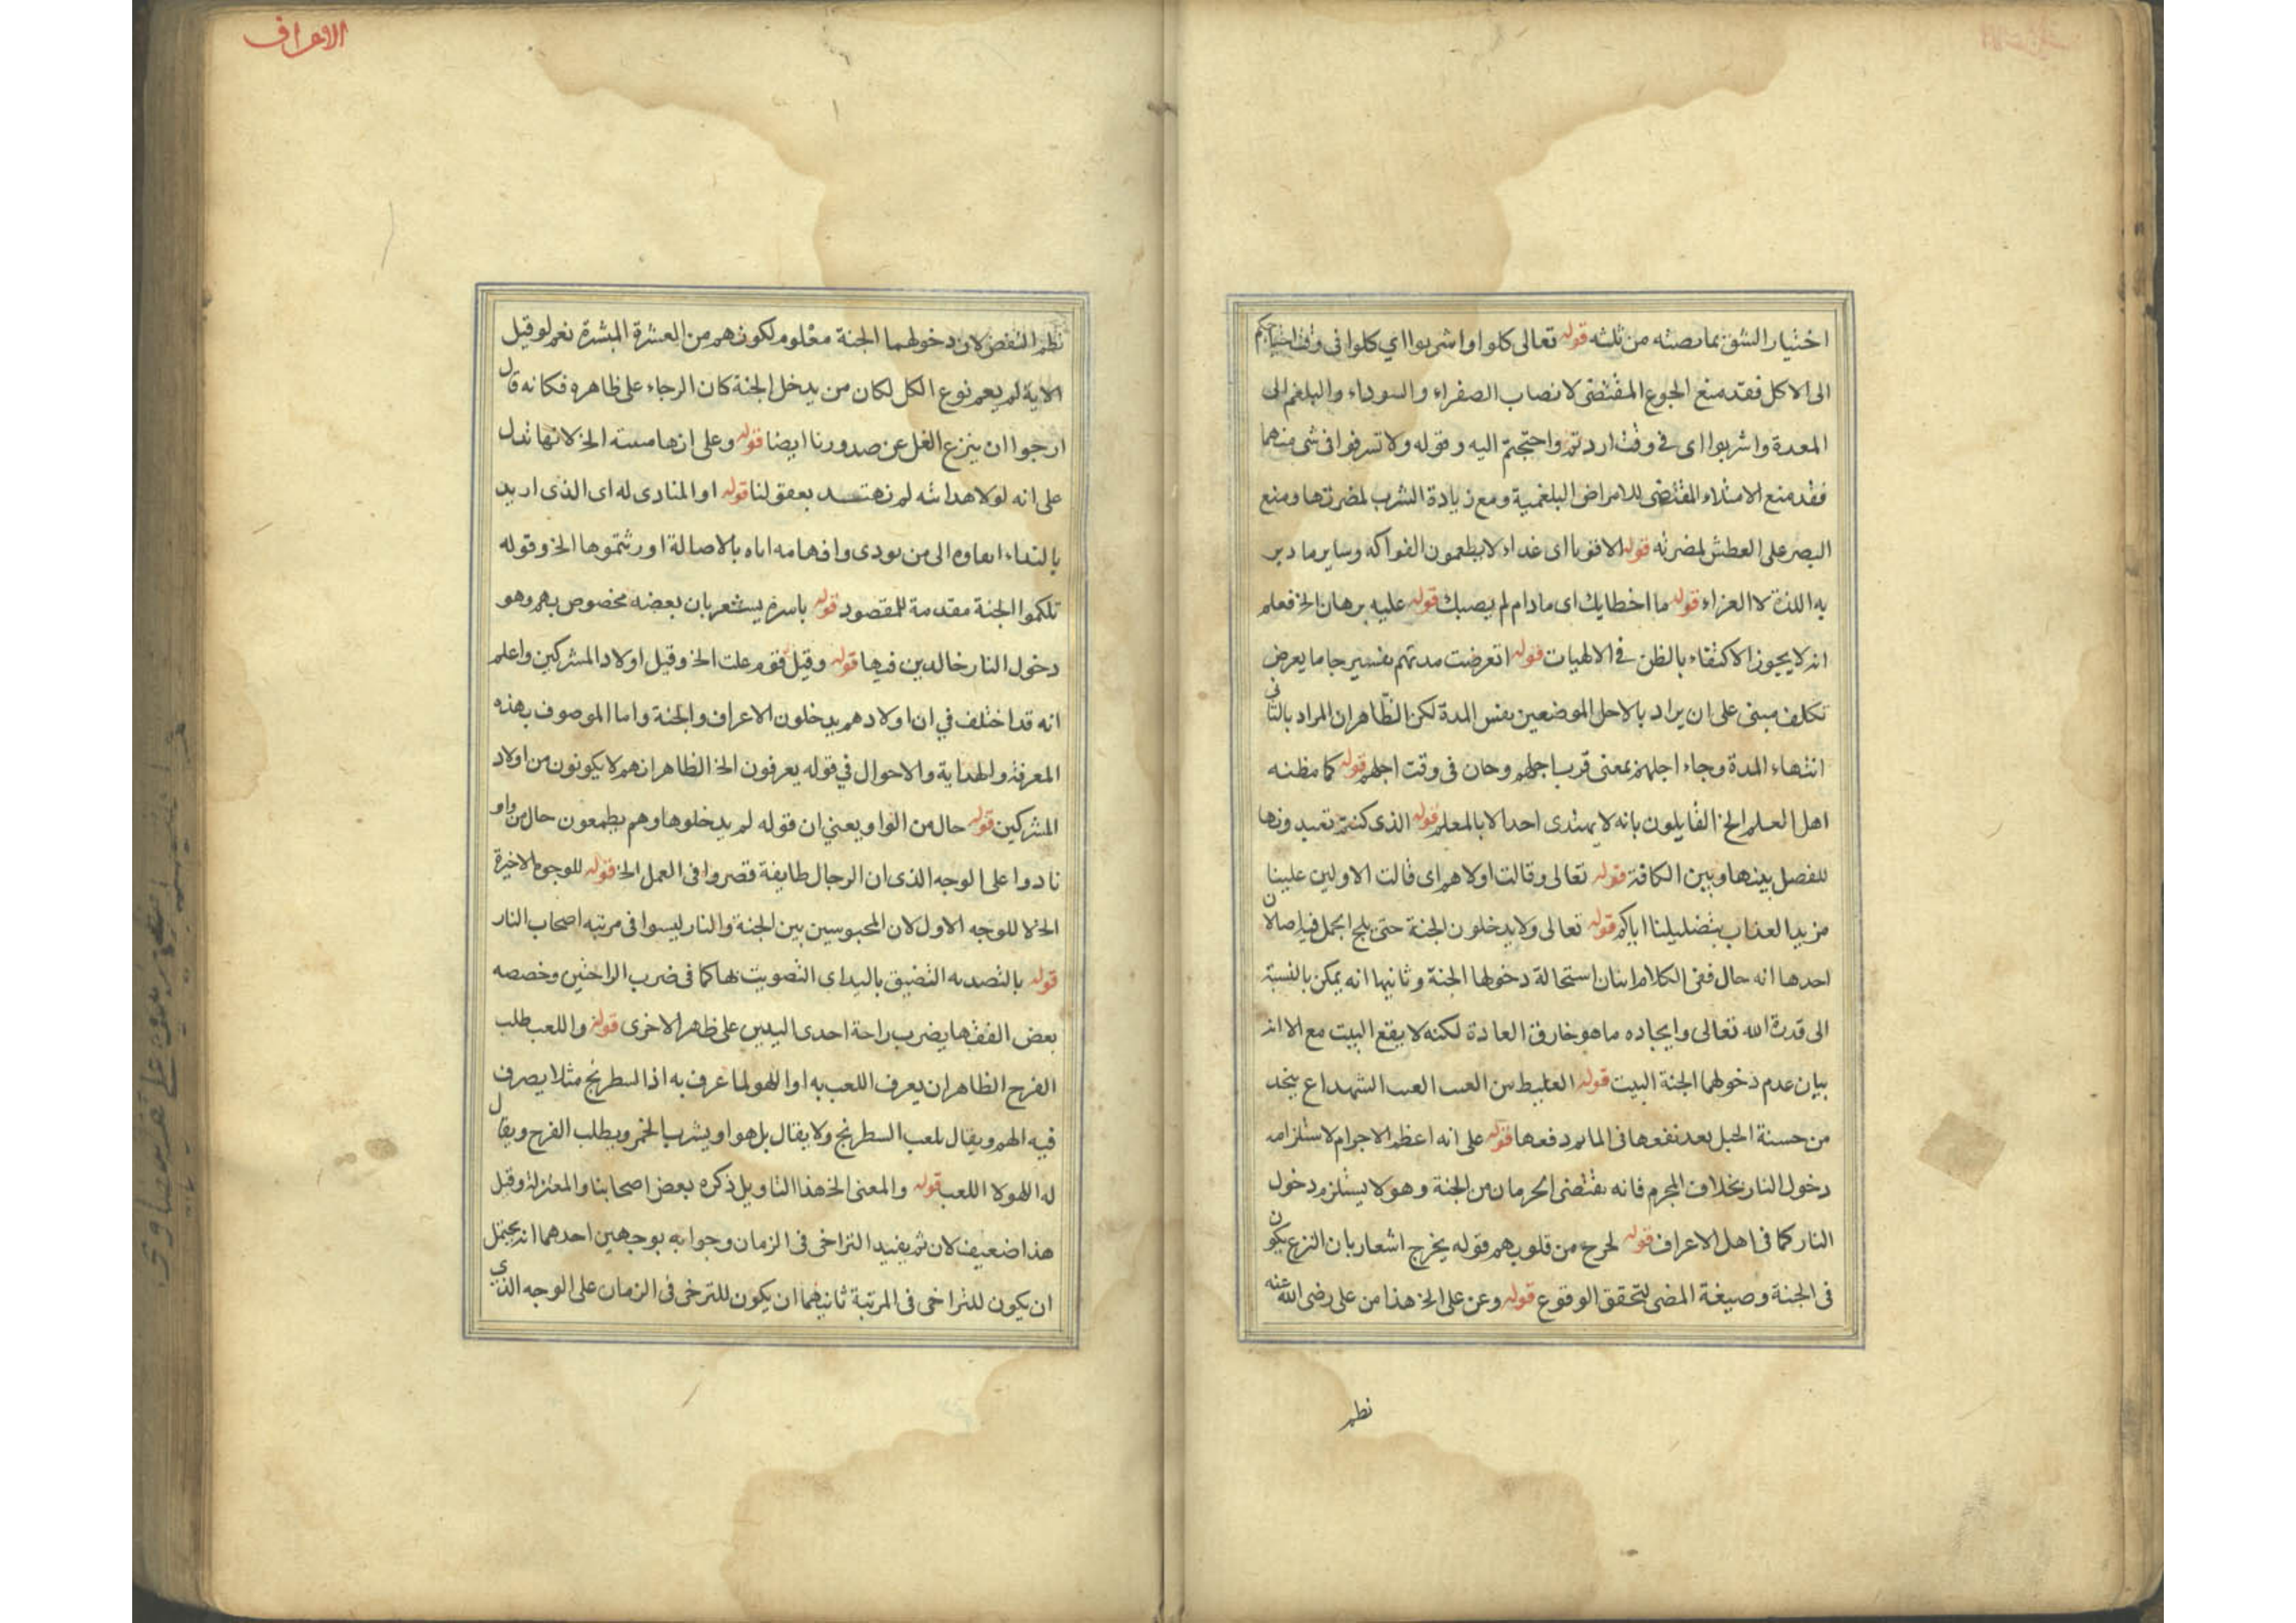 اختيار الشق بما نصته من ثلثه قوله تعالى كلوا واشربوا اي كلوا في وقت احتياجكم
الى الاكل فقد منع الجوع المقتضى لانصاب الصفراء والسوداء والبلغم الى
المعدة واشربوا اى فى وقت اردتم واحتجتم اليه وقوله ولا تسرفوا فى شى منهما
فقد منع الامتلاء المقتضى للامراض البلغمية ومع زيادة الشرب لمضرتها ومنع
البصر على العطش لمضرته قوله الاقوتا اى غداء لا يطعمون الفواكه وساير ما دبر
به اللذة لا العزاء قوله ما اخطايك اى مادام لم يصبك قوله عليه برهان الخ فعلم
انه لا يجوز الاكتفاء بالظن فى الالهيات قوله انقرضت مدتهم تفسير جا ما يعرض
تكلف مبنى على ان يراد بالاجل الموضعين نفس المدة لكن الظاهر ان المراد بالثانى
انتهاء المدة وجاء اجلهم بمعنى قرب اجلهم وحان فى وقت اجلهم قوله كما مظنه
اهل العلم الخ القايلون بانه لا يهتدى احد الا بالمعلم قوله الذى كنتم تعبدونها
للفصل بينها وبين الكافة قوله تعالى وقالت اولاهم اى قالت الاولين علينا
مزيد العذاب بتضليلنا اياكم قوله تعالى ولا يدخلون الجنة حتى يلج الجمل فيه اصلان
احدها انه حال ففى الكلام اتيان استحالة دخولها الجنة وثانيها انه يمكن بالنسبة
الى قدرة الله تعالى وايجاده ما هو خارق العادة لكنه لا يقع البيت مع الا انه
بيان عدم دخولهما الجنة البيت قوله الغليط من العنب العنب الشهداع يتخد
من حسنة الحبل بعد نفعها فى الماء ودفعها قوله على انه اعظم الاجرام لاستلزامه
دخول النار بخلاف المجرم فانه يقتضى الحرمان من الجنة وهو لا يستلزم دخول
النار كما فى اهل الاعراف قوله لحرح من قلوبهم قوله يخرج اشعار بان النزع يكون
فى الجنة وصيغة المضى لتحقق الوقوع قوله وعن على الخ هذا من على رضى الله عنه
نظم
الاعراف
نظم النفض لان دخولهما الجنة معلوم لكونهم من العشرة المبشرة نعم لو قيل
الاية لم يعم نوع الكل لكان من يدخل الجنة كان الرجاء على ظاهره فكانه قال
ارجوا ان ينزع الغل عن صدورنا ايضا قوله وعلى انها مبينة الخ لانها تدل
على انه لولا هدايته لم نهتد بعقولنا قوله او المنادى له اى الذى اريد
بالنداء اعلام الى من نودى وافهامه اياه بالاصالة اورثتموها الخ وقوله
تلكموا الجنة مقدمة للمقصود قوله باسره يشعر بان بعضه مخصوص بهم وهو
دخول النار خالدين فيها قوله وقيل قوم علت الخ وقيل اولاد المشركين واعلم
انه قد اختلف في ان اولادهم يدخلون الاعراف والجنة واما الموصوف بهذه
المعرفة والهداية والاحوال في قوله يعرفون الخ الظاهر انهم لا يكونون من اولاد
المشركين قوله حال من الواو يعني ان قوله لم يدخلوها وهم يطمعون حال من واو
نادوا على الوجه الذى ان الرجال طايفة قصروا فى العمل الخ قوله للوجوه الاخيرة
الخ لا للوجه الاول لان المحبوسين بين الجنة والنار ليسوا فى مرتبه اصحاب النار
قوله بالتصديه التضيق باليد اى التصويت بها كما فى ضرب الراحتين وخصصه
بعض الفقها يضرب راحة احدى اليدين على ظاهر الاخرى قوله واللعب طلب
الفرح الظاهر ان يعرف اللعب به او اللهو لما عرف به اذ السطرنج مثلا يصرف
فيه الهم ويقال بلعب السطرنج ولا يقال بل هو او يشرب الخمر ويطلب الفرح ويقال
له اللهو لا اللعب قوله والمعنى الخ هذا التاويل ذكره بعض اصحابنا والمعتزلة وقيل
هذا ضعيف لان ثم يفيد التراخى فى الزمان وجوابه بوجهين احدهما انه يحتمل
ان يكون للتراخى فى المرتبة ثانيهما ان يكون للترخى فى الزمان على الوجه الذي